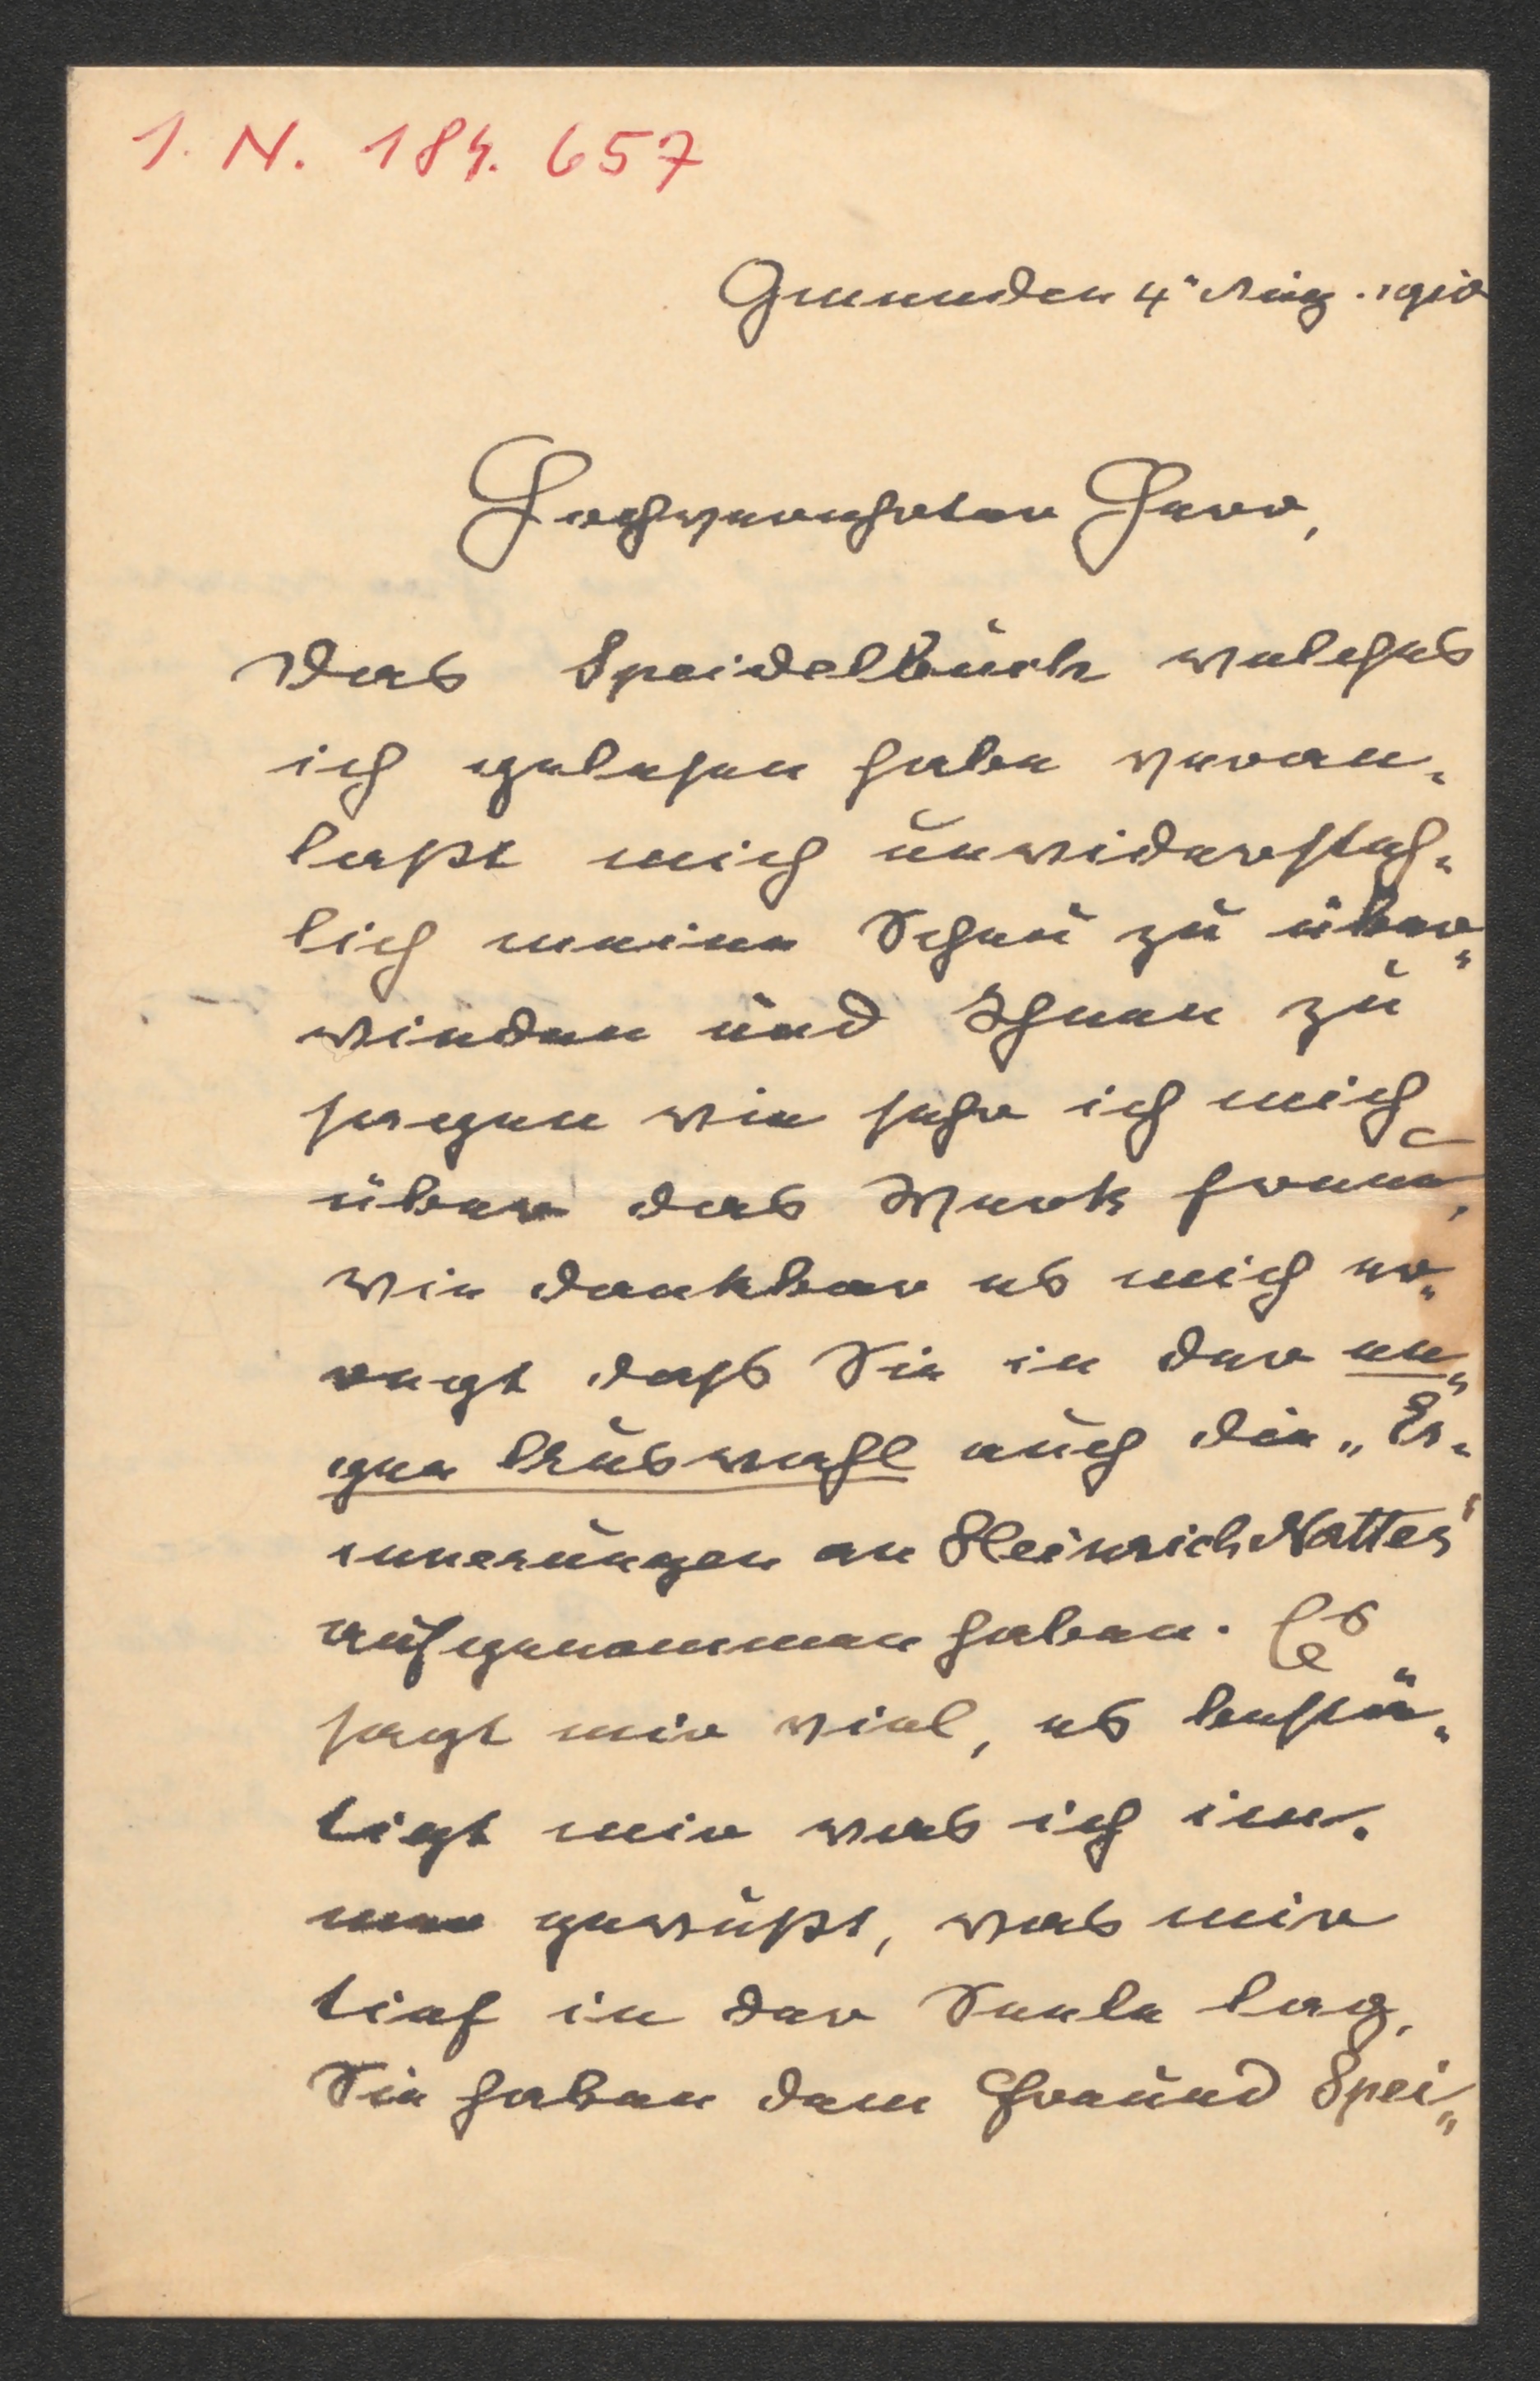 I. N. 184.657
Gmunden 4" Aug. 1910
Hochverehrter Herr,
Das Speidelbuch welches
ich gelesen habe veran-
laßt mich unwidersteh-
lich meine Scheu zu über-
winden und Ihnen zu
sagen wie sehr ich mich
über das Werk freue,
wie dankbar es mich er-
regt daß Sie in der en-
gen Auswahl auch die „Er-
innerungen an Heinrich Natter"
aufgenommen haben. Es
sagt mir viel, es bestä-
tigt mir was ich im-
mer gewußt, was mir
tief in der Seele lag.
Sie haben dem Freund Spei-